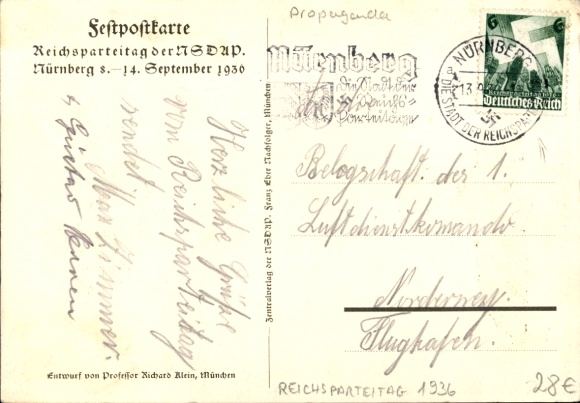 Festpostkarte
Reichsparteitag der NSDAP.
Nürnberg 8.–14. September 1936
Herzliche Grüße
vom Reichsparteitag
sendet
Max Zimmer.
Gustav
Entwurf von Professor Richard Klein, München
Zentralverlag der NSDAP. Franz Eher Nachfolger, München
Propaganda
Nürnberg
die Stadt der
Reichs-
Parteitage
NÜRNBERG
13.9
DIE STADT DER REICHSPARTEI
6 6
Reichsparteitag 1936
Deutsches Reich
Belegschaft des 1.
Luftdienstkomando
Norderney.
Flughafen.
REICHSPARTEITAG 1936
28€